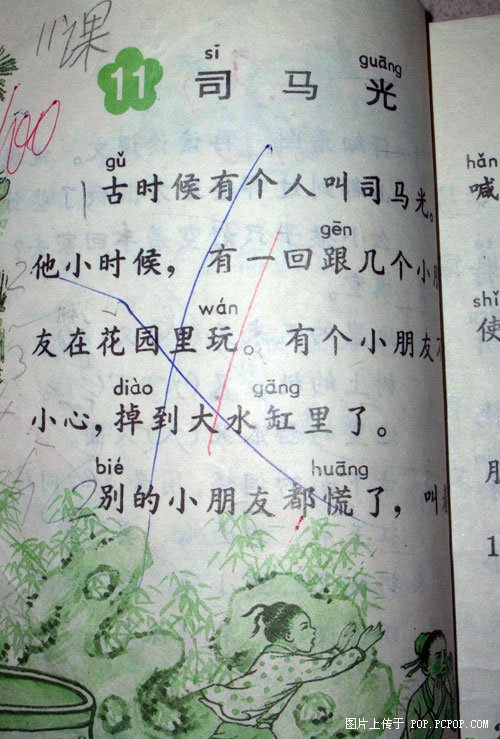 11课
11 司马光
sī guāng
100
gǔ
古时候有个人叫司马光。
gēn
他小时候，有一回跟几个小
wán
友在花园里玩。有个小朋友
diào gāng
小心，掉到大水缸里了。
bié huāng
别的小朋友都慌了，叫
hǎn
喊
shǐ
使
图片上传于 POP.PCPOP.COM